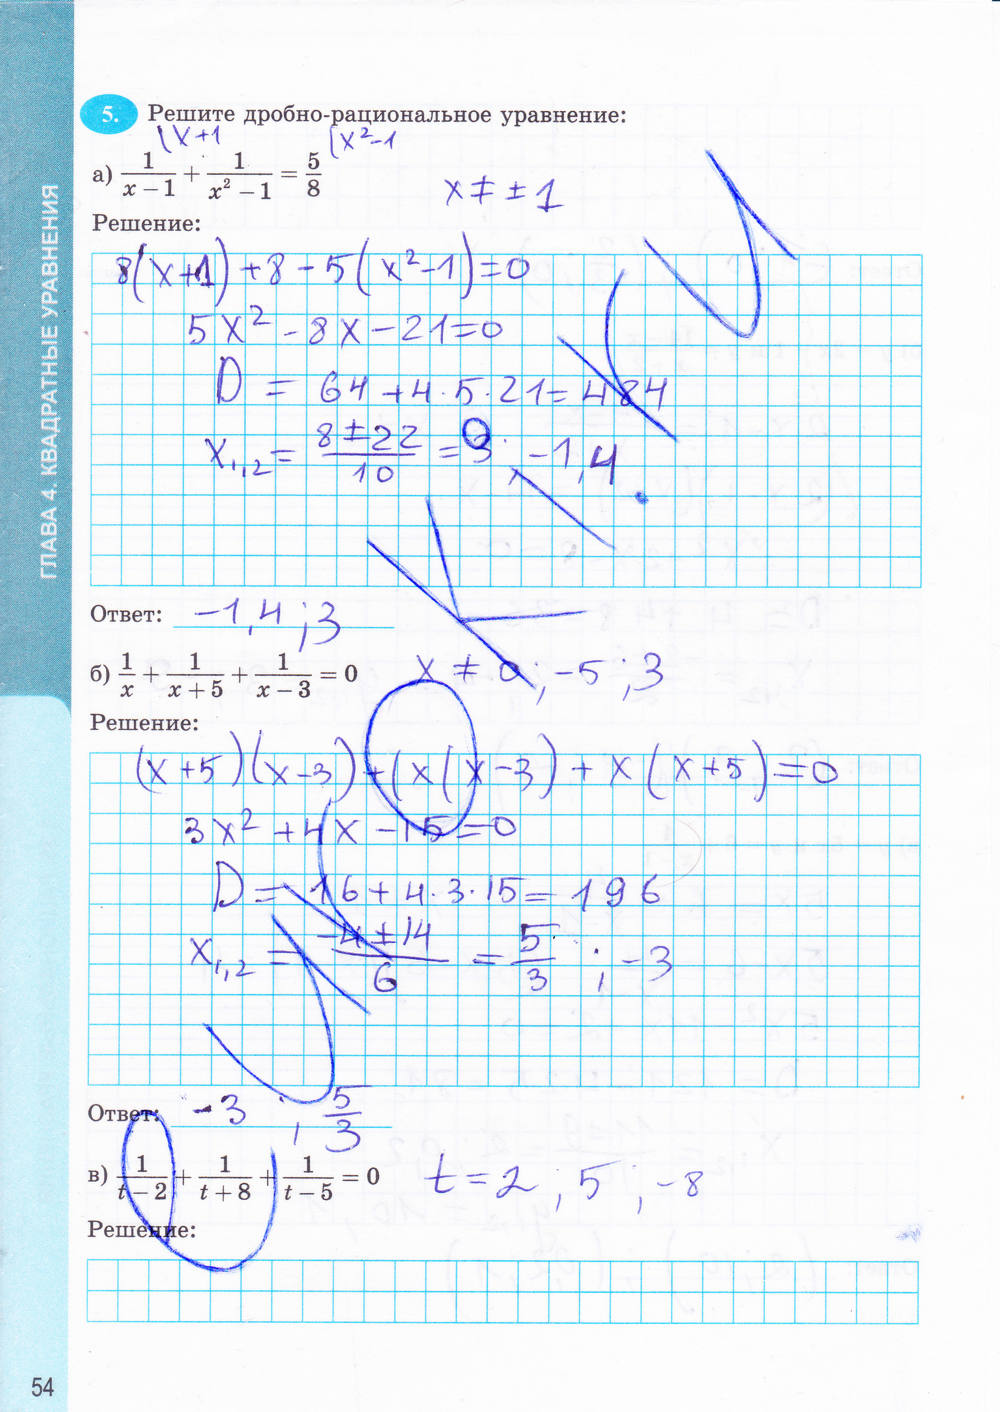 ГЛАВА 4. КВАДРАТНЫЕ УРАВНЕНИЯ
5. Решите дробно-рациональное уравнение:
(x+1 (x²-1
а) 1/(x − 1) + 1/(x² − 1) = 5/8 x ≠ ± 1
Решение:
8(x+1)+8-5(x²-1)=0
5x²-8x-21=0
D = 64+4·5·21=484
x₁,₂ = (8±22)/10 = 3; -1,4.
Ответ: -1,4;3
б) 1/x + 1/(x + 5) + 1/(x − 3) = 0 x ≠ 0;-5;3
Решение:
(x+5)(x-3)+(x(x-3)+x(x+5)=0
3x²+4x-15=0
D=16+4·3·15=196
x₁,₂ = (-4±14)/6 = 5/3 ; -3
Ответ: -3 ; 5/3
в) 1/(t − 2) + 1/(t + 8) + 1/(t − 5) = 0 t=2;5;-8
Решение:
54